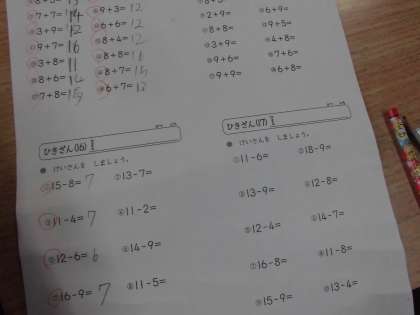 7+7=14 6+6=12
3+9=12 8+4=12
9+7=16
3+8=11 8+7=15
8+6=14 6+7=13
7+8=15
2+9= 6+9=
8+8= 9+5=
3+9= 4+8=
9+6= 7+6=
9+9= 6+8=
ひきざん(16)
けいさんを しましょう。
①15-8=7 ②13-7=
③11-4=7 ④11-2=
⑤12-6=6 ⑥14-9=
⑦16-9=7 ⑧11-5=
ひきざん(17)
けいさんを しましょう。
①11-6= ②18-9=
③13-9= ④12-8=
⑤12-4= ⑥14-7=
⑦16-8= ⑧11-8=
⑨15-9= ⑩13-4=